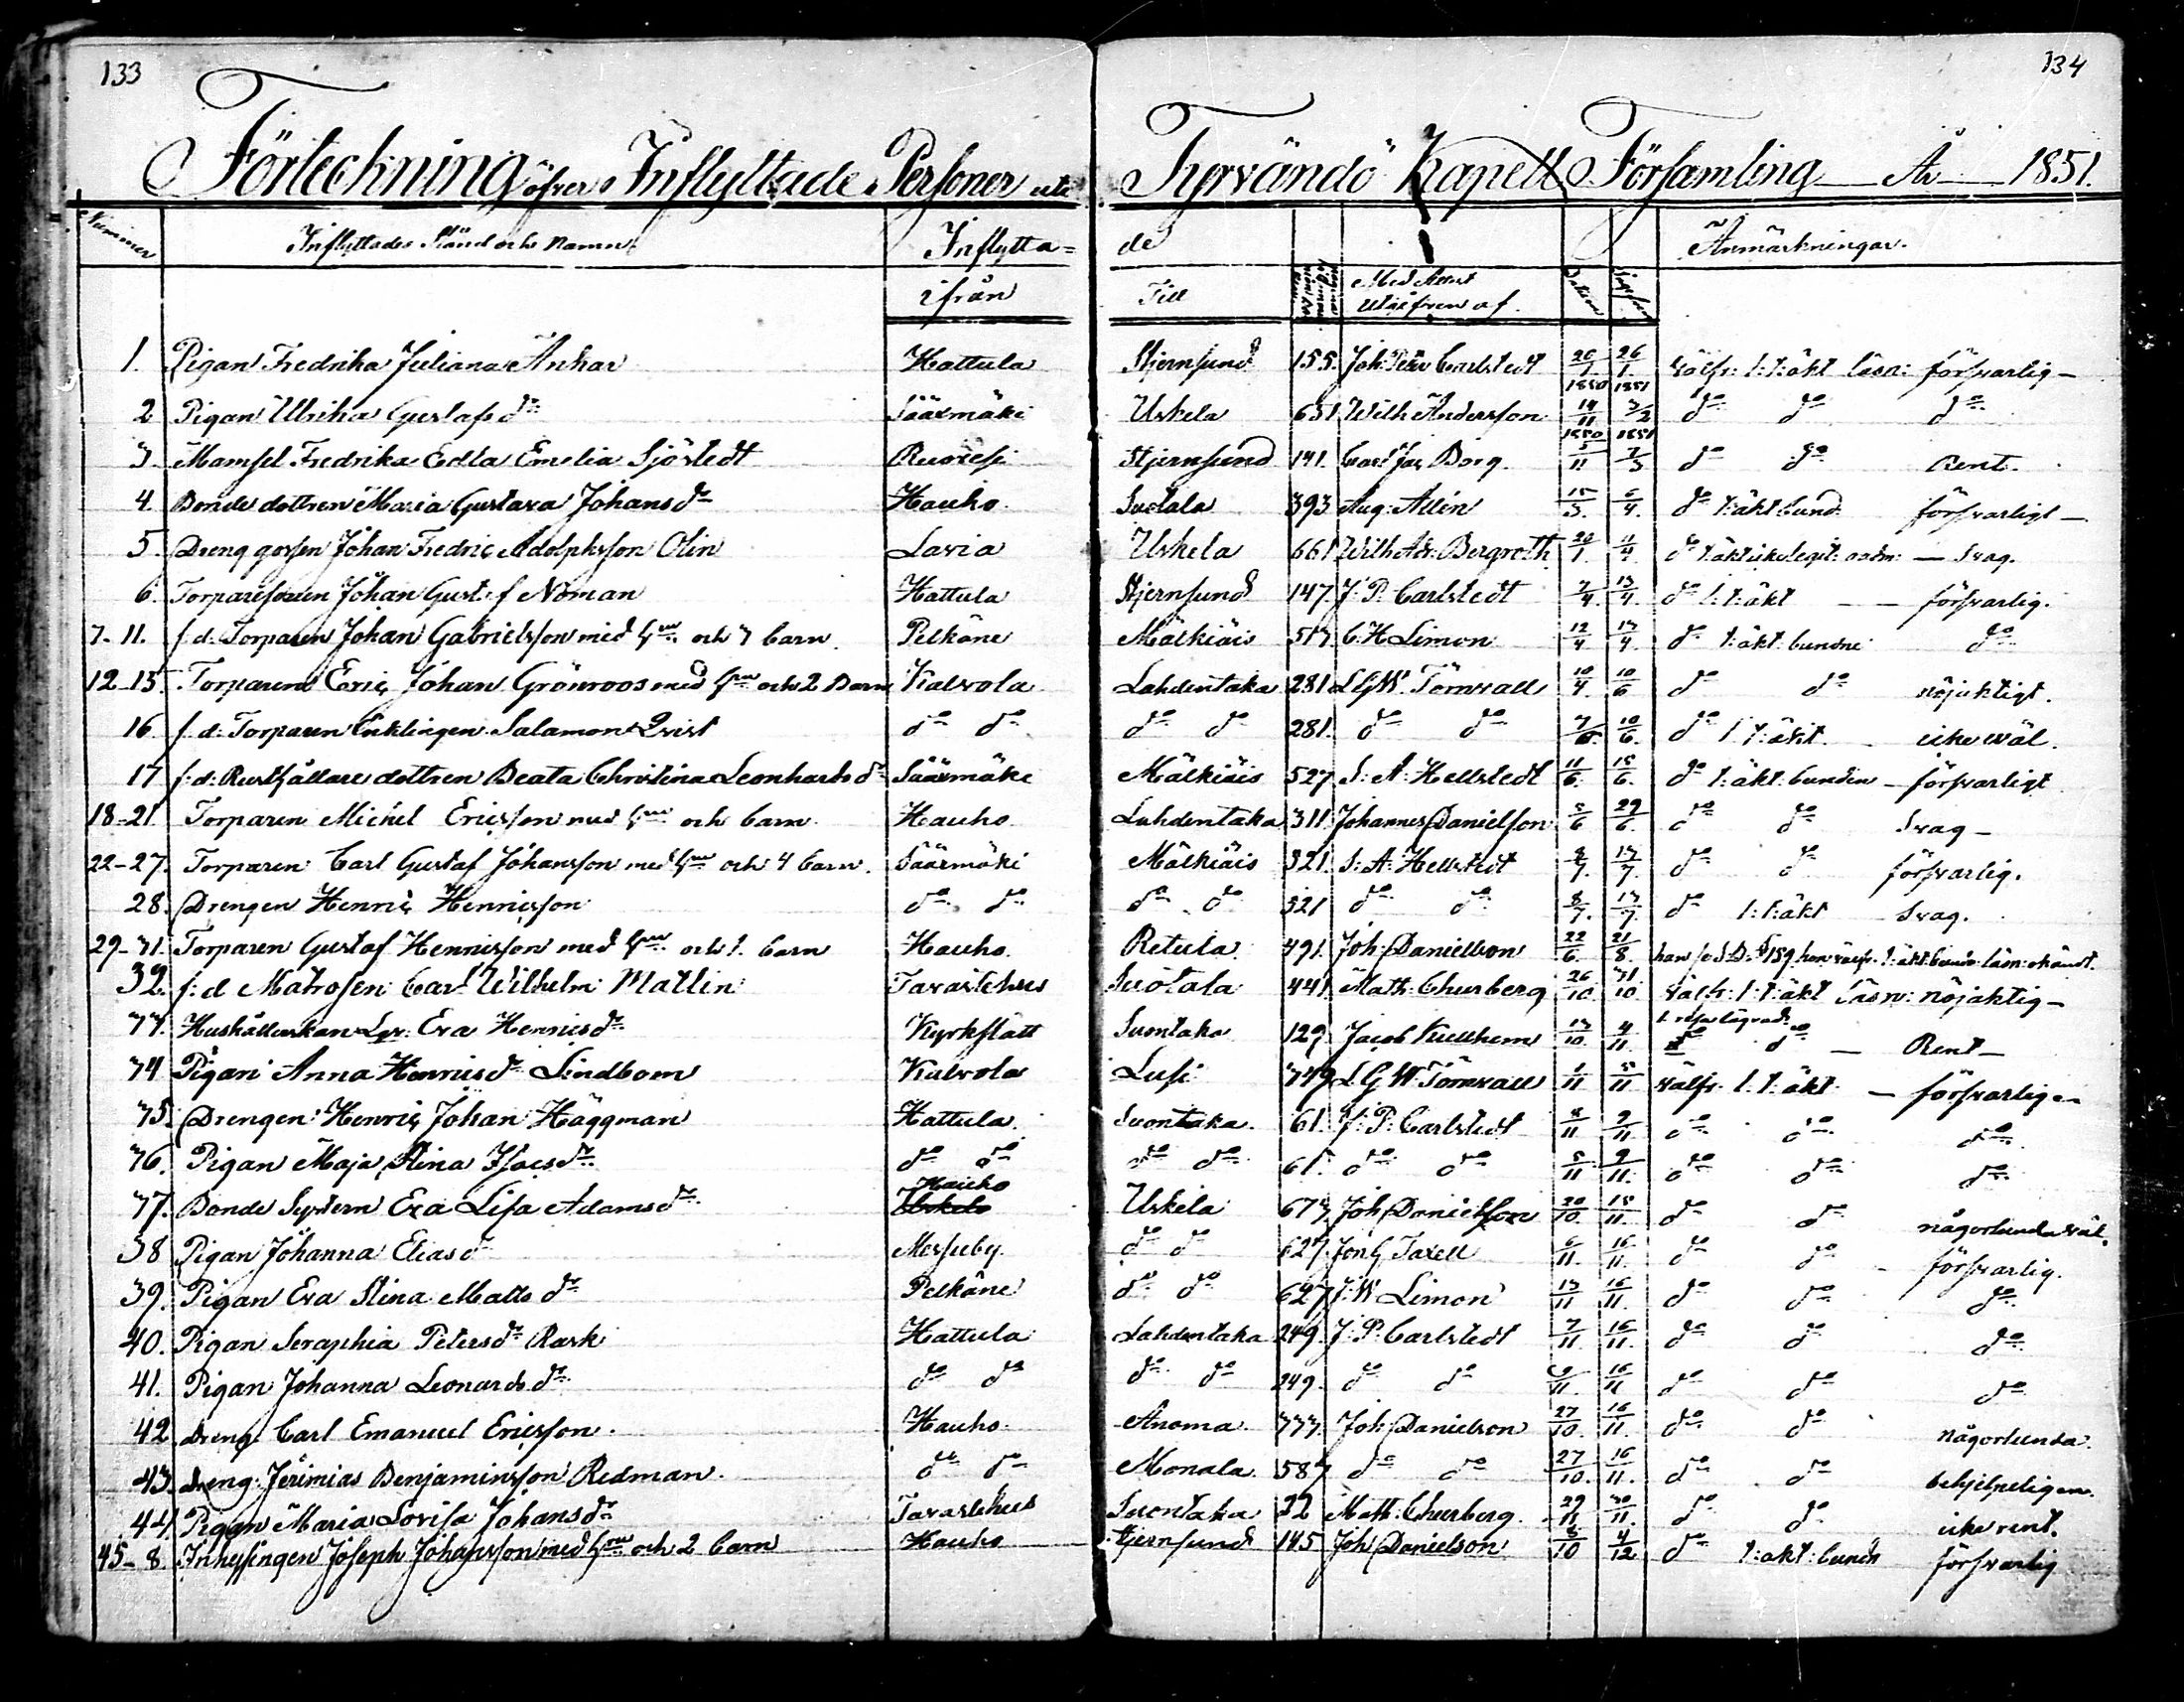 133
134
Förteckning öfver Inflyttade Personer uti Tyrvändö Kapell Församling År 1851.
Nummer Inflyttades Stånd och Namn. Inflytta= de Anmärkningar.
ifrån Till Med Attest Utgifven af.
1. Pigan Fredrika Juliana Ankar Hattula Stjernsund 155. Joh: Petter Carlstedt 20/1. 26/1. välfr: l: t: äkt läsn: försvarlig -
1850 1851
2 Pigan Ulrika Gustafs dr Sääxmäki Uskela 651 Wilh Andersson 14/11 3/2 do do do
1850 1851
3. Mamsel Fredrika Edla Emelia Sjöstedt Ruovesi Stjernsund 141. Carl Jac Borg. 5/11 7/3 do do Rent.
4. Bonde dottren Maria Gustava Johans dr Hauho. Suotala 393 Aug: Allén 15/3. 6/4. do t: äkt bund. försvarligt -
5. Dreng gossen Johan Fredric Adolphsson Olin Lavia Uskela 661 Wilh Adr. Bergroth. 20/1. 11/4. do t: äkt icke legit: - Svag.
6. Torparesonen Johan Gustaf Noman Hattula Stjernsund 147. J: P. Carlstedt 7/4. 13/4. do l: t: äkt - försvarlig.
7-11. f: d: Torparen Johan Gabrielsson med hu och 3 barn. Pelkäne Mälkiäis 513 C: H Limon 12/4 13/4. do t: äkt: bundne do
12-15. Torparen Eric Johan Grönroos med hu och 2 Barn Kalvola Lahdentaka 281 L G W. Törnvall 10/4. 10/6 do do nöjaktigt.
16. f: d: Torparen Enklingen Salamon Qvist do do do do 281. do do 7/6. 10/6. do l: t: äkt. icke wäl.
17 f: d: Rusthållare dottren Beata Christina Leonhards dr Sääxmäki Mälkiäis 527 S: A: Hellstedt 11/6. 15/6. do t: äkt: bunden - försvarligt
18-21. Torparen Michel Ericsson med hu och barn. Hauho Lahdentaka 311 Johannes Danielson 5/6 29/6. do do Svag -
22-27. Torparen Carl Gustaf Johansson med hu och 4 barn. Sääxmäki Mälkiäis 321. S: A: Hellstedt 8/7. 13/7. do do försvarlig.
28. Drengen Henric Henricsson do do do do 321 do do 8/7. 13/7. do l: t: äkt Svag.
29-31. Torparen Gustaf Henricsson med hu och 1. barn Hauho. Retula 491. Joh: Danielson 22/6. 21/8. han se S.B. 159. hon välfr. t: äkt: bund: läsn: okändt.
32. f: d Matrosen Carl Wilhelm Matlin Tavastehus Suotala 441. Math: Churberg 26/10. 31/10. välfr: l: t: äkt läsn: nöjaktig -
33. Hushållerskan Eva Henrics dr Kyrkslätt Suontaka 129 Jacob Kullhem 13/10. 4/11. do do - Rent -
34 Pigan Anna Henrics dr Lindbom Kalvola Lusi 349 L G W Törnvall 1/11 5/11 välfr. l. t. äkt. - försvarlig -
35. Drengen Henric Johan Häggman Hattula. Suontaka. 61. J: P: Carlstedt 8/11 9/11. do do do
36. Pigan Maja Stina Isacs dr do do do do 61. do do 5/11 9/11. do do do
37. Bonde Systern Eva Lisa Adams dr Uskela Hauho Uskela 673 Joh Danielsson 20/10. 15/11. do do någorlunda väl.
38 Pigan Johanna Elias dr Messuby. do do 627 Jon G Taxell 6/11. 16/11. do do försvarlig.
39. Pigan Eva Stina Matts dr Pelkäne do do 627 J: W Limon 13/11 16/11. do do do
40. Pigan Seraphia Peters dr Rask Hattula Lahdentaka 249. J: P: Carlstedt 7/11. 16/11. do do do
41. Pigan Johanna Leonards dr do do do do 249. do do 6/11. 16/11 do do do
42. Dreng Carl Emanuel Ericsson. Hauho. Anoma 333. Joh: Danielson 27/10. 16/11. do do någorlunda.
43. Dreng Jerimias Benjaminsson Redman. do do Monala. 583 do do 27/10. 16/11. do do behjelpeligen.
44. Pigan Maria Lovisa Johans dr Tavastehus Suontaka 32 Math: Churberg. 29/11. 30/11. do do icke rent.
45-8. Inhysingen Joseph Johansson med hu och 2 barn Hauho Stjernsund 145. Joh: Danielson 8/10 4/12. do t: äkt: bund försvarlig